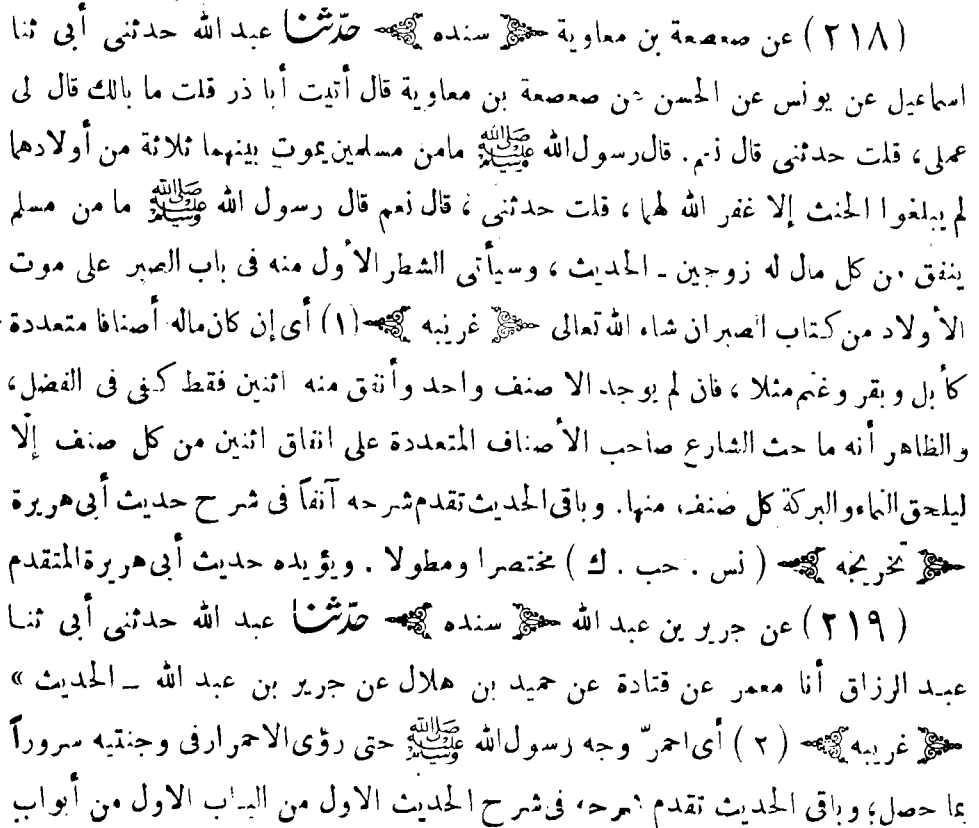 (٢١٨) عن صعصعة بن معاوية ﴿ سنده ﴾ حدّثنا عبد الله حدثنى أبى ثنا
اسماعيل عن يونس عن الحسن عن صعصعة بن معاوية قال أتيت أبا ذر قلت ما بالك قال لى
عملى، قلت حدثنى قال نعم. قال رسول الله ﷺ مامن مسلمين يموت بينهما ثلاثة من أولادهما
لم يبلغوا الحنث إلا غفر الله لهما، قلت حدثنى، قال نعم قال رسول الله ﷺ ما من مسلم
ينفق من كل مال له زوجين ـ الحديث، وسيأتى الشطر الأول منه فى باب الصبر على موت
الأولاد من كتاب الصبر ان شاء الله تعالى ﴿ غريبه ﴾ (١) أى إن كان ماله أصنافا متعددة
كأبل وبقر وغنم مثلا، فان لم يوجد الا صنف واحد وأنفق منه اثنين فقط كفى فى الفضل،
والظاهر أنه ما حث الشارع صاحب الأصناف المتعددة على انفاق اثنين من كل صنف إلّا
ليلحق النماء والبركة كل صنف منها. وباقى الحديث تقدم شرحه آنفاً فى شرح حديث أبى هريرة
﴿ تخريجه ﴾ (نس . حب . ك) مختصرا ومطولا . ويؤيده حديث أبى هريرة المتقدم
(٢١٩) عن جرير بن عبد الله ﴿ سنده ﴾ حدّثنا عبد الله حدثنى أبى ثنا
عبد الرزاق أنا معمر عن قتادة عن حميد بن هلال عن جرير بن عبد الله ـ الحديث »
﴿ غريبه ﴾ (٢) أى احمرّ وجه رسول الله ﷺ حتى رؤى الاحمرار فى وجنتيه سروراً
بما حصل؛ وباقى الحديث تقدم شرحه فى شرح الحديث الاول من الباب الاول من أبواب